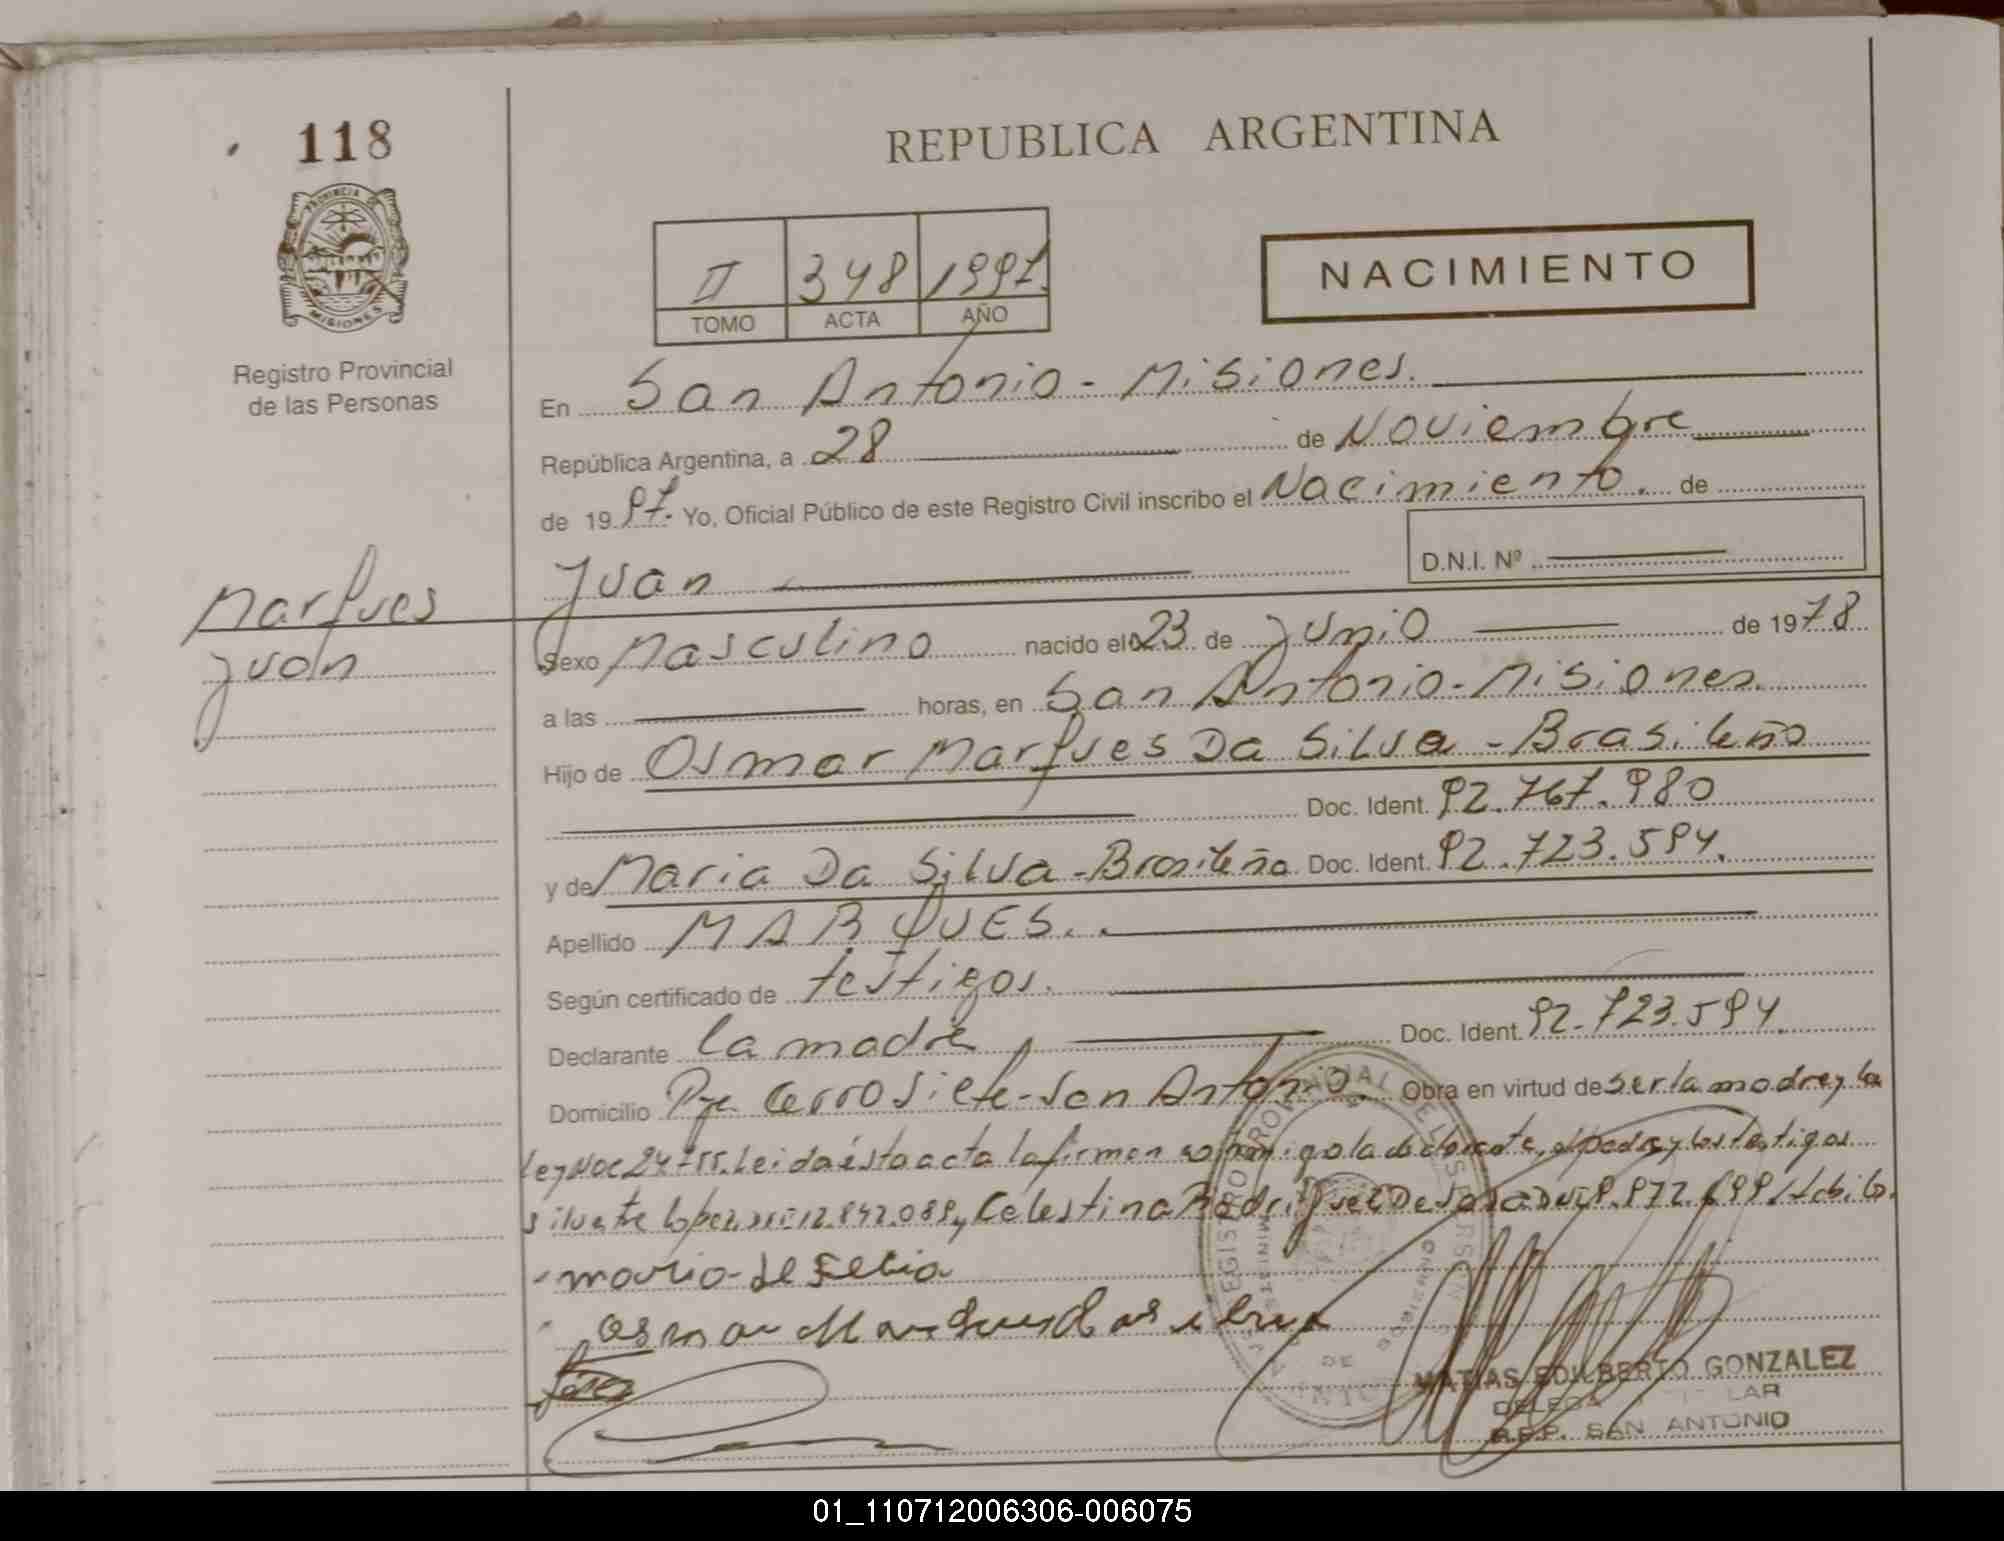 118
REPUBLICA ARGENTINA
PROVINCIA DE
MISIONES
Registro Provincial
de las Personas
II 348 1997.
TOMO ACTA AÑO
NACIMIENTO
En San Antonio - Misiones.
República Argentina, a 28 de Noviembre
de 1997. Yo, Oficial Público de este Registro Civil inscribo el Nacimiento. de
Juan
D.N.I. Nº
Marques
Juan
Sexo Masculino nacido el 23 de Junio de 1978
a las horas, en San Antonio - Misiones.
Hijo de Osmar Marques Da Silva - Brasileño
Doc. Ident. 92.767.980
y de Maria Da Silva - Brasileña Doc. Ident. 92.723.594.
Apellido MARQUES.
Según certificado de testigos.
Declarante la madre Doc. Ident. 92.723.594.
Domicilio Pje Cerro Siete - San Antonio Obra en virtud de ser la madre y la
ley Nº 24755. Leida ésta acta la firman conmigo la declarante, el padre y los testigos
Silvestre Lopez 12.842.089 y Celestina Rodriguez De Sosa
Osmar
MATIAS EDILBERTO GONZALEZ
R.P.P. SAN ANTONIO
01_110712006306-006075